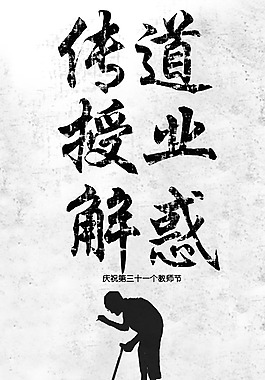 传道
授业
解惑
庆祝第三十一个教师节